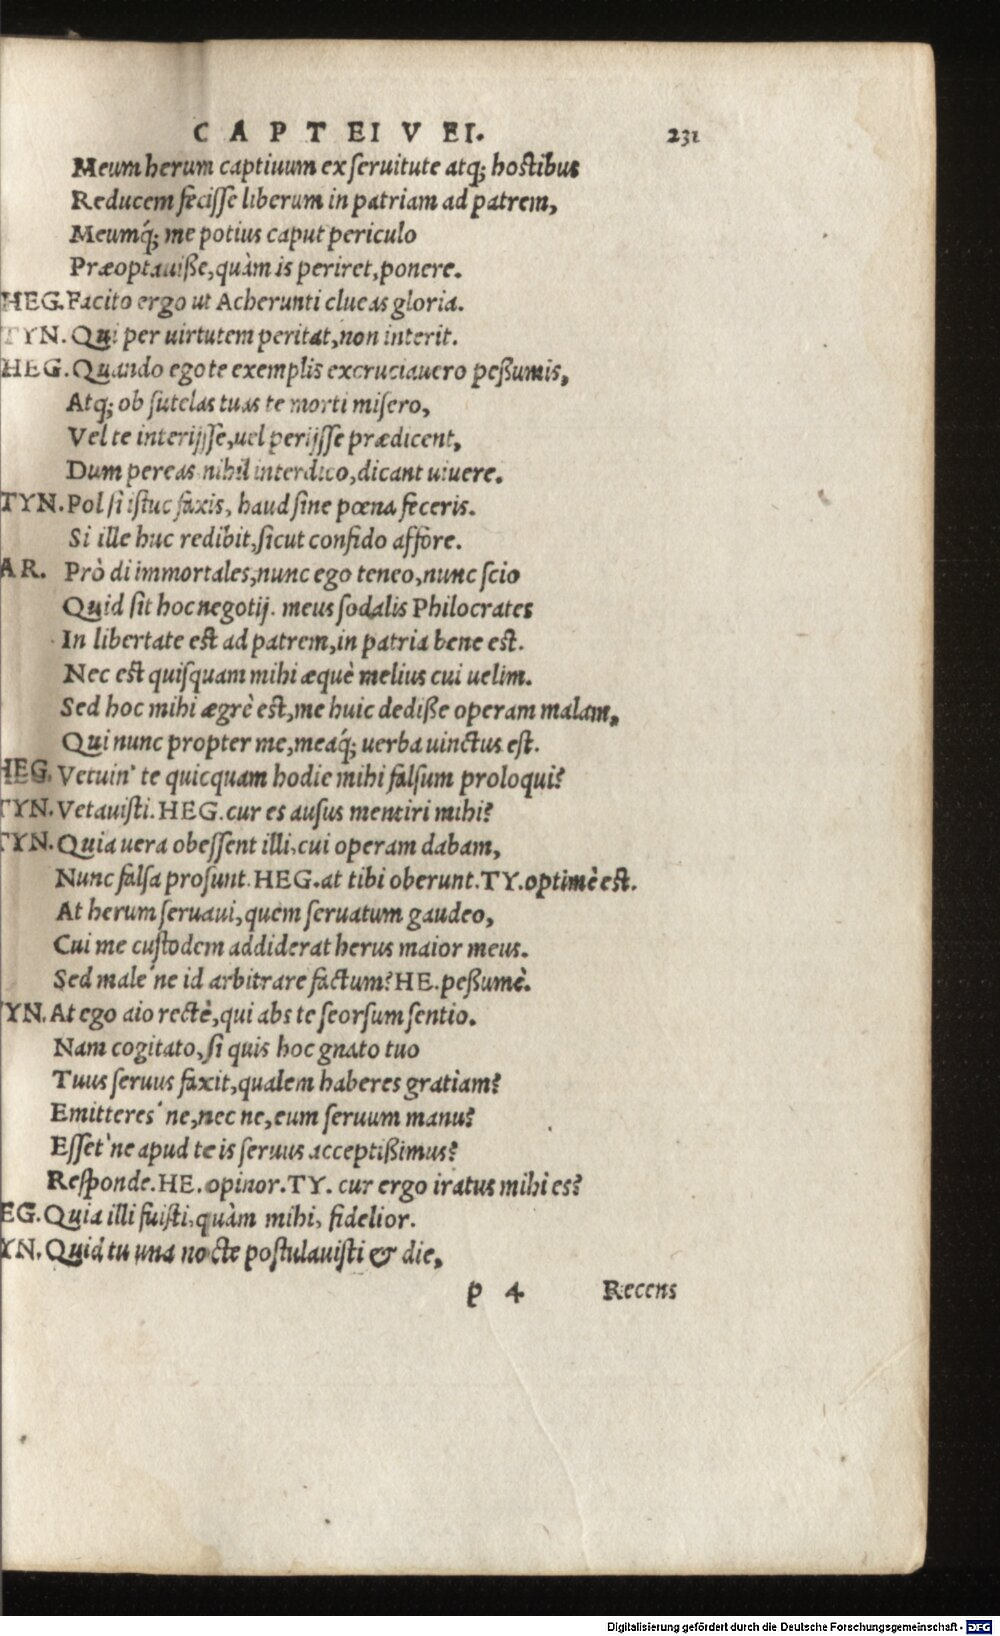 CAPTEIVEI. 231
Meum herum captiuum ex seruitute atq; hostibus
Reducem fecisse liberum in patriam ad patrem,
Meumq́; me potius caput periculo
Præoptauiße, quàm is periret, ponere.
HEG. Facito ergo ut Acherunti clueas gloria.
TYN. Qui per uirtutem peritat, non interit.
HEG. Quando ego te exemplis excruciauero peßumis,
Atq; ob sutelas tuas te morti misero,
Vel te interijsse, uel perijsse prædicent,
Dum pereas nihil interdico, dicant uiuere.
TYN. Pol si istuc faxis, haud sine pœna feceris.
Si ille huc redibit, sicut confido affore.
AR. Prò di immortales, nunc ego teneo, nunc scio
Quid sit hoc negotij. meus sodalis Philocrates
In libertate est ad patrem, in patria bene est.
Nec est quisquam mihi æquè melius cui uelim.
Sed hoc mihi ægrè est, me huic dediße operam malam,
Qui nunc propter me, meaq́; uerba uinctus est.
HEG. Vetuin' te quicquam hodie mihi falsum proloqui?
TYN. Vetauisti. HEG. cur es ausus mentiri mihi?
TYN. Quia uera obessent illi, cui operam dabam,
Nunc falsa prosunt. HEG. at tibi oberunt. TY. optimè est.
At herum seruaui, quem seruatum gaudeo,
Cui me custodem addiderat herus maior meus.
Sed male'ne id arbitrare factum? HE. peßumè.
YN. At ego aio rectè, qui abs te seorsum sentio.
Nam cogitato, si quis hoc gnato tuo
Tuus seruus faxit, qualem haberes gratiam?
Emitteres'ne, nec ne, eum seruum manu?
Esset'ne apud te is seruus acceptißimus?
Responde. HE. opinor. TY. cur ergo iratus mihi es?
EG. Quia illi fuisti, quàm mihi, fidelior.
YN. Quid tu una nocte postulauisti & die,
p 4 Recens
Digitalisierung gefördert durch die Deutsche Forschungsgemeinschaft - DFG